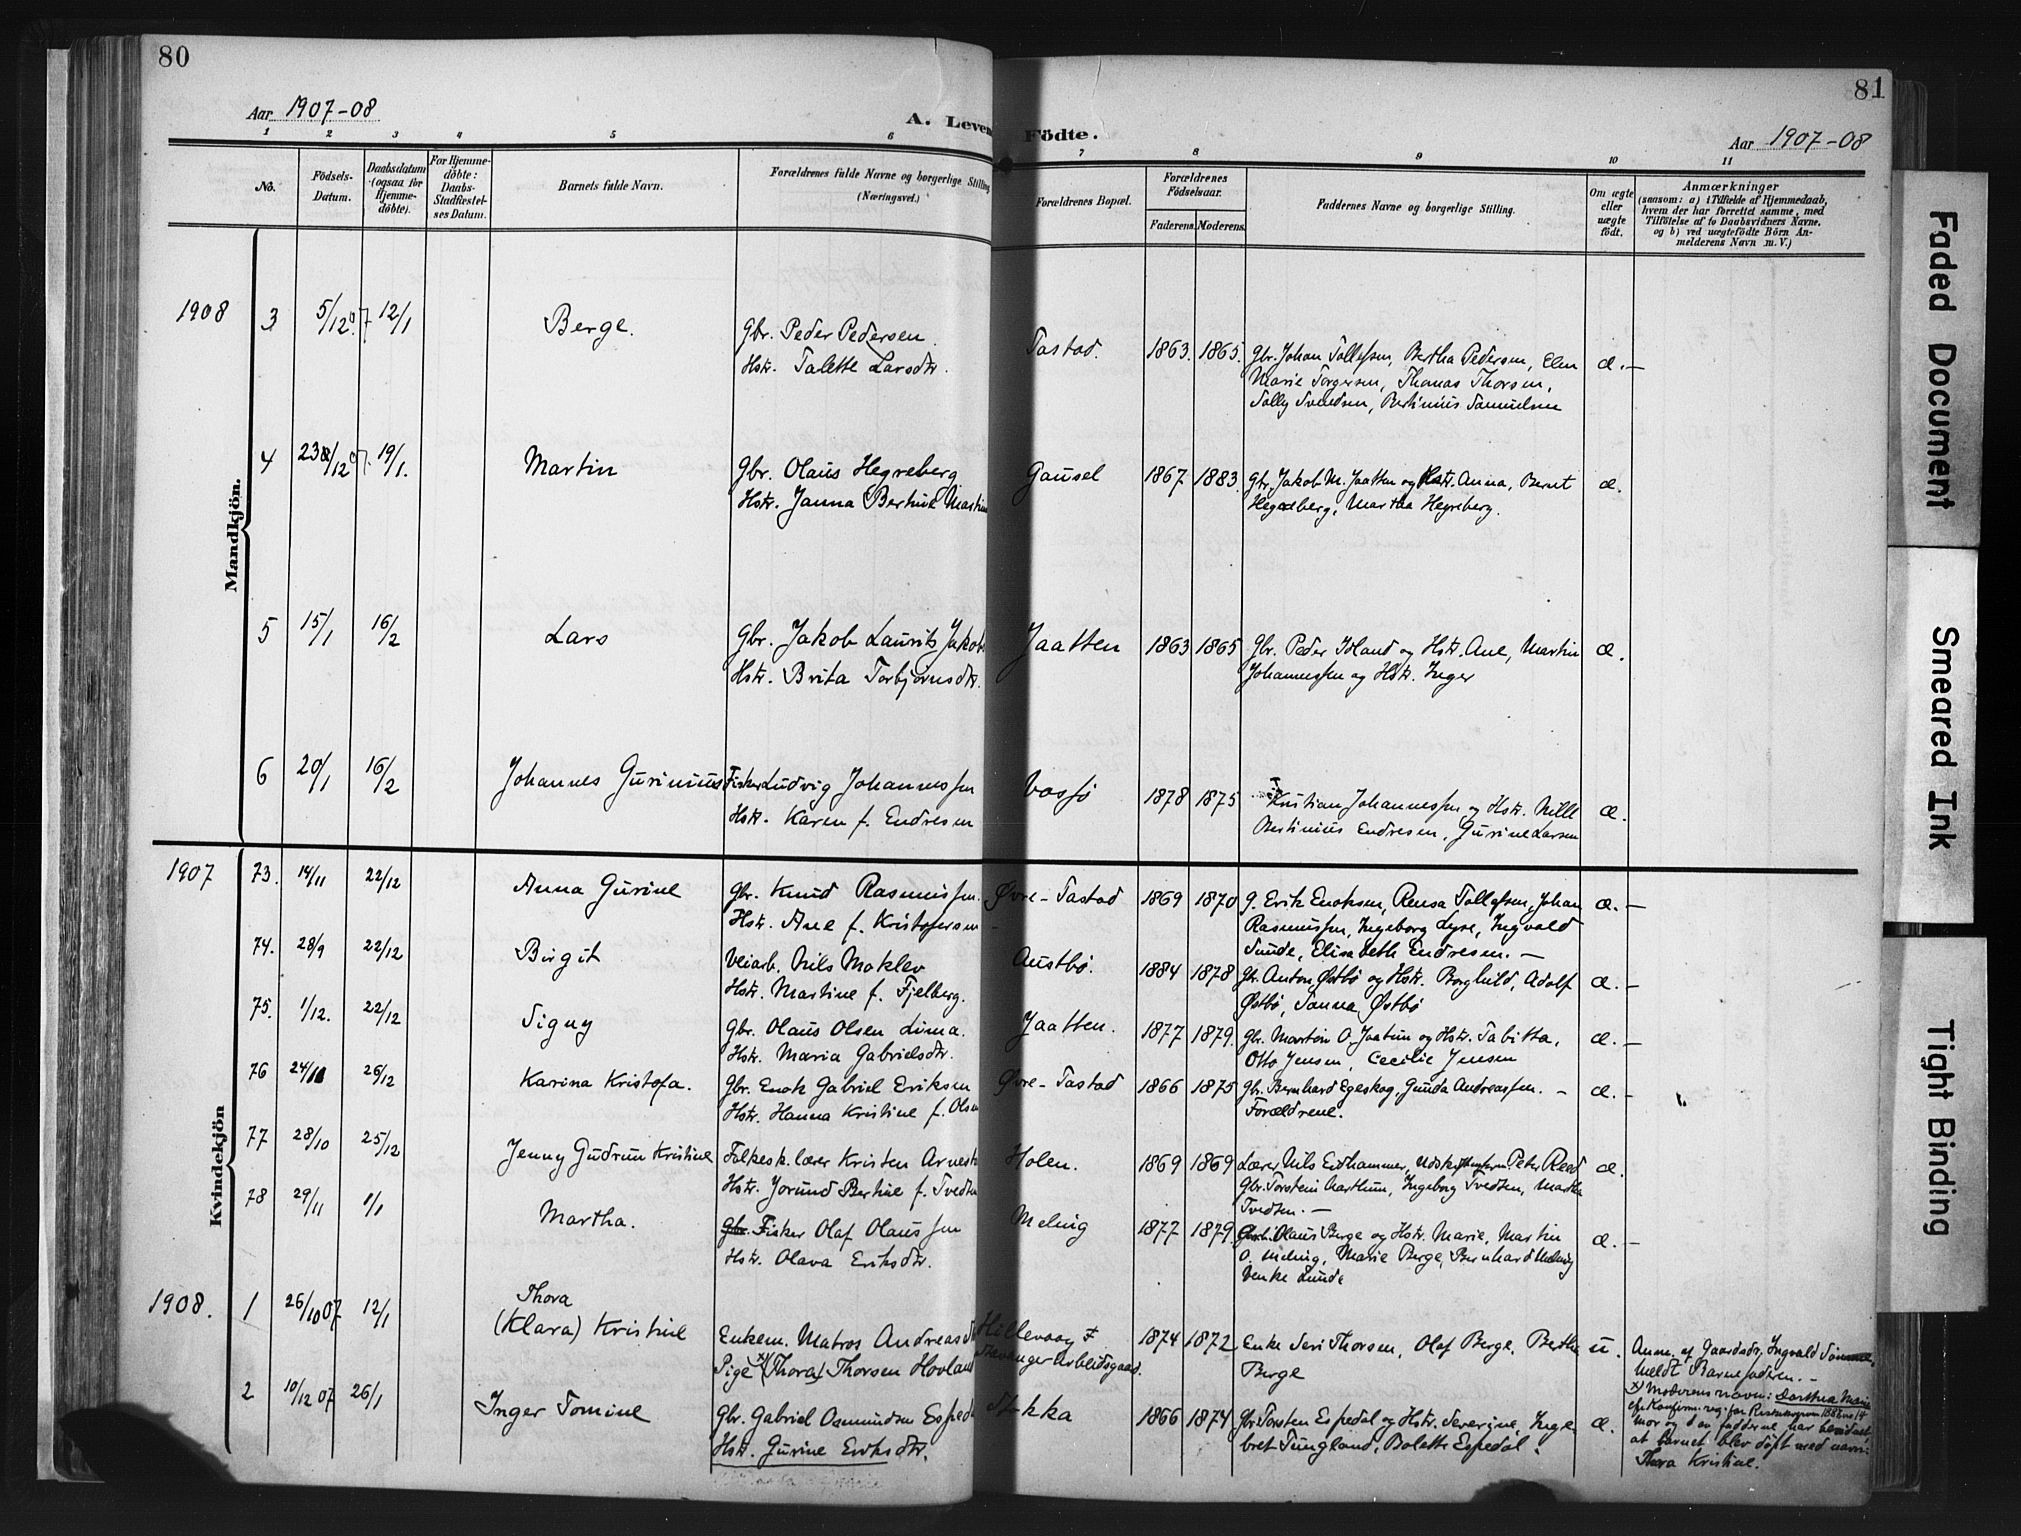 80
81
Aar 1907-08
A. Leven
Födte.
Aar 1907-08
1 2 3 4 5 6 7 8 9 10 11
No.
Födsels-
Datum.
Daabsdatum
(ogsaa for
Hjemme-
döbte).
For Hjemme-
döbte:
Daabs-
Stadfæstel-
ses Datum.
Barnets fulde Navn.
Forældrenes fulde Navne og borgerlige Stilling
(Næringsvei.)
Forældrenes Bopæl.
Forældrenes
Födselsaar.
Faderens. Moderens.
Faddernes Navne og borgerlige Stilling.
Om ægte
eller
uægte
födt.
Anmærkninger
(saasom: a) i Tilfælde af Hjemmedaab,
hvem der har forrettet samme, med
Tilföielse af to Daabsvidners Navne.
og b) ved uægtefödte Börn An-
melderens Navn m. V.)
Mandkjön.
1908 3 5/12 07 12/1 Berge. Gbr. Peder Pedersen. Tastad. 1863. 1865. Gbr. Johan Tollefsen, Bertha Pedersen, Elen æ. —
Hstr. Talette Larsdtr. Marie Torgersen, Thomas Thorsen,
Solly Svendsen, Bertinius Samuelsen
4 23/12 07. 19/1. Martin Gbr. Olaus Hegreberg Gausel 1867 1883 Gbr. Jakob M. Jaatten og Hstr. Anna, Bernt æ.
Hstr. Janna Bertine Martin Hegreberg, Martha Hegreberg.
5 15/1 16/2 Lars Gbr. Jakob Laurits Jakob Jaatten 1863 1865 Gbr. Peder Island og Hstr. Ane, Martin æ.
Hstr. Brita Torbjørnsdtr. Johannessen og Hstr. Inger
6 20/1 16/2 Johannes Gurinius Fisker Ludvig Johannessen Vassø 1878 1875 Kristian Johannessen og Hstr. Nille æ.
Hstr. Karen f. Endresen Bertinius Endresen, Gurine Larsen
Kvindekjön
1907 73. 14/11 22/12 Anna Gurine Gbr. Knud Rasmussen. Øvre-Tastad 1869 1870 G. Erik Enoksen, Rensa Tollefsen, Johan æ. —
Hstr. Ane f. Kristofersen Rasmussen, Ingeborg Lyse, Ingvald
Sunde, Elisabeth Endresen. —
74. 28/9 22/12 Birgit Veiarb. Nils Moklev Austbø. 1884 1878 Gbr. Anton Østbø og Hstr. Borghild, Adolf æ. —
Hstr. Martine f. Fjelberg. Østbø, Sanna Østbø
75. 1/12. 22/12 Signy Gbr. Olaus Olsen Lima. Jaatten. 1877 1879. Gbr. Martin O. Jaatun og Hstr. Tabitta, æ. —
Hstr. Maria Gabrielsdtr. Otto Jensen, Cecilie Jensen
76 24/11 26/12 Karina Kristofa. Gbr. Enok Gabriel Eriksen Øvre-Tastad 1866 1875 Gbr. Bernhard Egeskog, Gunda Andreassen. — æ. —
Hstr. Hanna Kristine f. Olsen Forældrene.
77 28/10 25/12 Jenny Gudrun Kristine Folkesk.lærer Kristen Arnest Holen. 1869 1869 Lærer Nils Eidhammer, Peter Reed æ.
Hstr. Jorund Bertine f. Tvedten Gbr. Torstein Aarthun, Ingeborg Tvedten, Martha
Tvedten. —
78 29/11 1/1 Martha. Gbr. Fisker Olaf Olaussen Meling 1877 1879. Olaus Berge og Hstr. Marie, Martin æ. —
Hstr. Olava Eriksdtr. O. Meling, Marie Berge, Bernhard Meling
Venke Lunde
1908. 1 26/10 07 12/1 Thora
(Klara) Kristine Enkem. Matros Andreas Hillevaag f 1874 1872 Enke Seri Thorsen, Olaf Berge, Berthe u. Anm. af Gaardsbr. Ingvald
Pige x) (Thora) Thorsen Hovland Stavanger Arbeidsgaard. Berge meldt Barnefaderen. —
x) Moderens navn: Dorthea Marie
2 10/12 07 26/1 Inger Tomine Gbr. Gabriel Osmundsen Espedal Stokka 1866 1874 Gbr. Torsten Espedal og Hstr. Severine, Inge- æ.
Hstr. Gurine Eriksdtr. bret Tungland, Bolette Espedal.
mor og d en fadderne har bevidnet
at barnet blev døpt med navn:
Thora Kristine.
Faded Document
Smeared Ink
Tight Binding